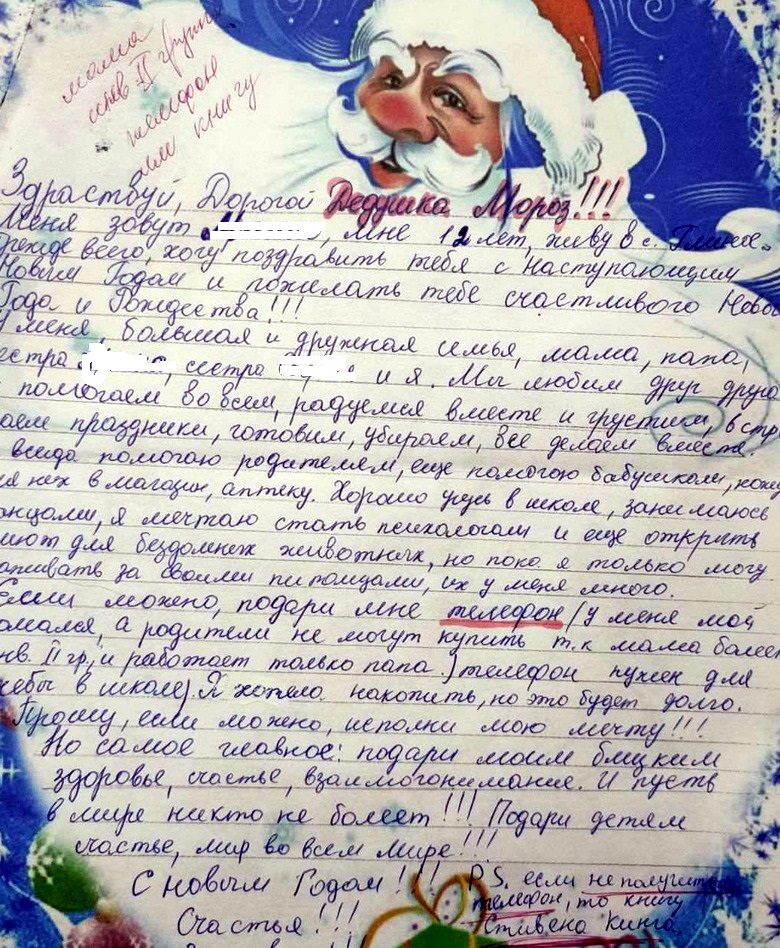 мама
инв II группы
телефон
или книгу
Здраствуй, Дорогой Дедушка Мороз!!!
Меня зовут , мне 12 лет, живу в с.
Прежде всего, хочу поздравить тебя с наступающим
Новым Годом и пожелать тебе счастливого Нового
Года и Рождества!!!
У меня, большая и дружная семья, мама, папа,
сестра , сестра и я. Мы любим друг друга
помогаем во всем, радуемся вместе и грустим, встр
аем праздники, готовим, убираем, все делаем вместе.
всегда помогаю родителям, еще помогаю бабушкам, хожу
для них в магазин, аптеку. Хорошо учусь в школе, занимаюсь
анцами, я мечтаю стать психологом и еще открыть
июют для бездомных животных, но пока я только могу
аживать за своими питомцами, их у меня много.
Если можно, подари мне телефон (у меня мой
омался, а родители не могут купить т.к мама болеет
инв. II гр, и работает только папа.) телефон нужен для
учебы в школе). Я хотела накопить, но это будет долго.
Прошу, если можно, исполни мою мечту!!!
Но самое главное: подари моим близким
здоровье, счастье, взаимопонимание. И пусть
в мире никто не болеет!!! Подари детям
счастье, мир во всем мире!!!
С новым Годом!!!
Счастья!!!
P.S. если не получится
телефон, то книгу
Стивена Кинга.